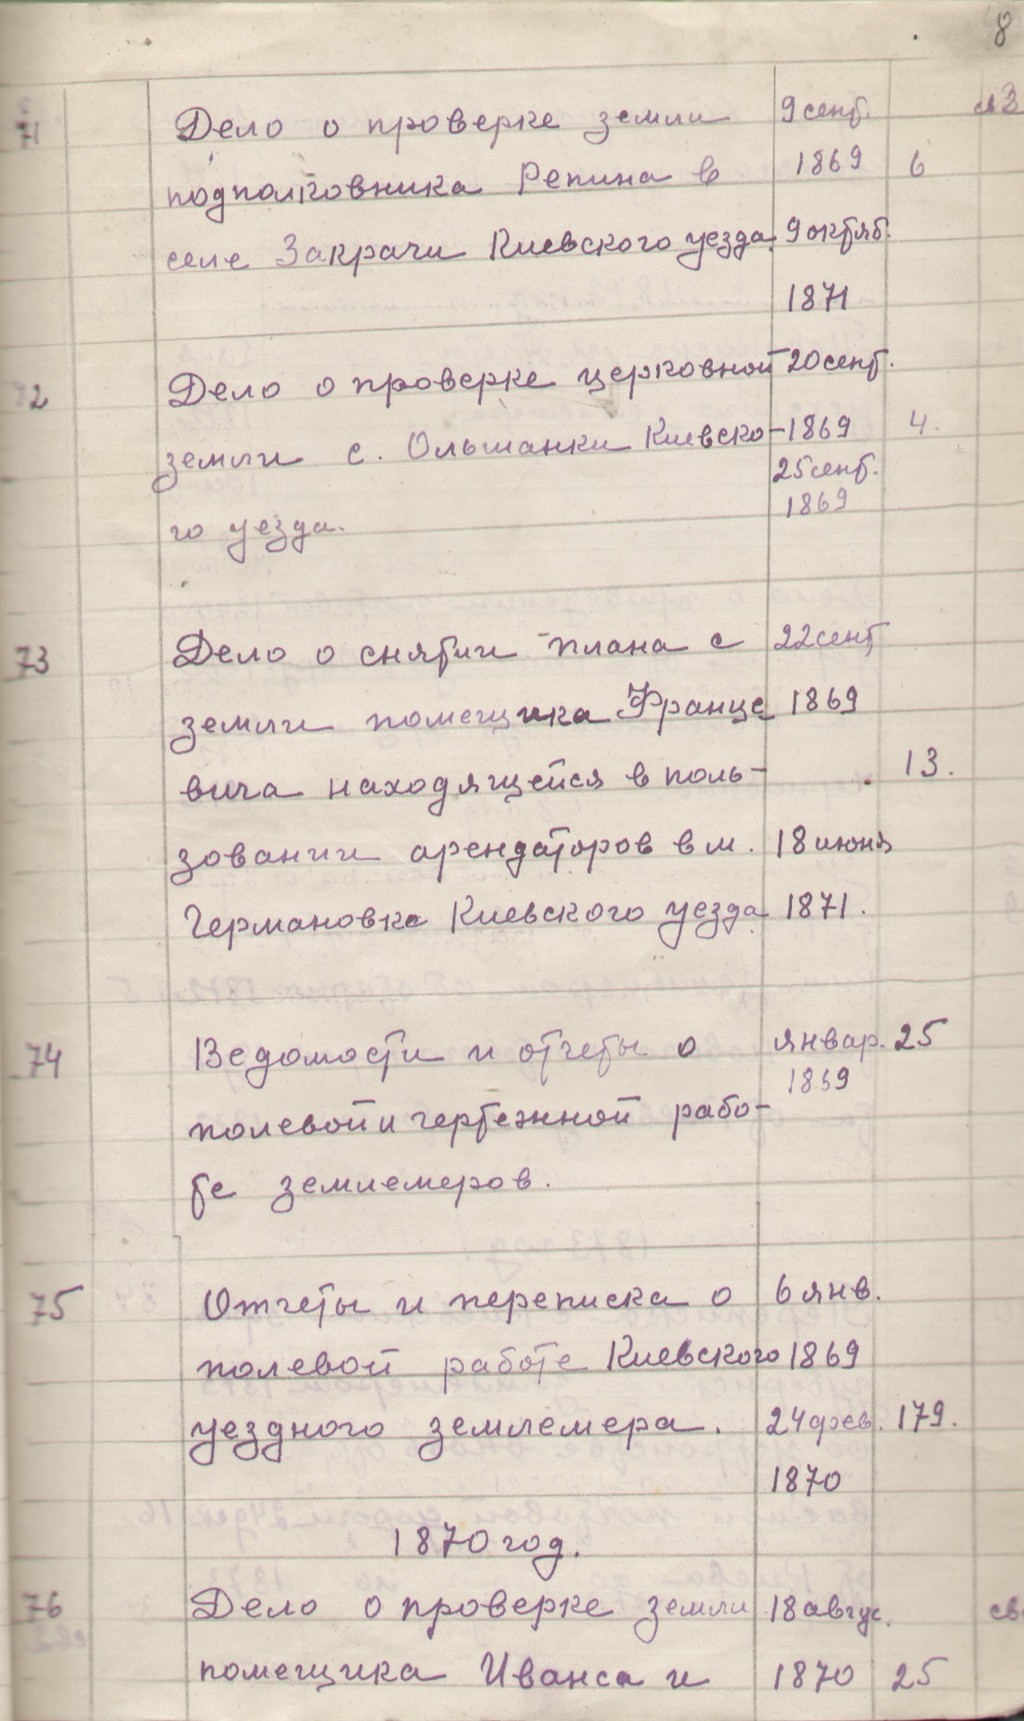 8
71 Дело о проверке земли 9 сент.
подполковника Репина в 1869 6
селе Закрачи Киевского уезда. 9 октяб.
1871
72 Дело о проверке церковной 20 сент.
земли с. Ольшанки Киевско- 1869 4.
25 сент.
1869
го уезда.
73 Дело о снятии плана с 22 сент
земли помещика Францке 1869
вича находящейся в поль- 13.
зовании арендаторов в м. 18 июня
Германовка Киевского уезда 1871.
74 Ведомости и отчеты о январ. 25
1869
полевой и чертежной рабо-
те землемеров.
75 Отчеты и переписка о 6 янв.
полевой работе Киевского 1869
уездного землемера. 24 фев. 179.
1870
1870 год.
76 Дело о проверке земли 18 авгус.
помещика Иванса и 1870 25